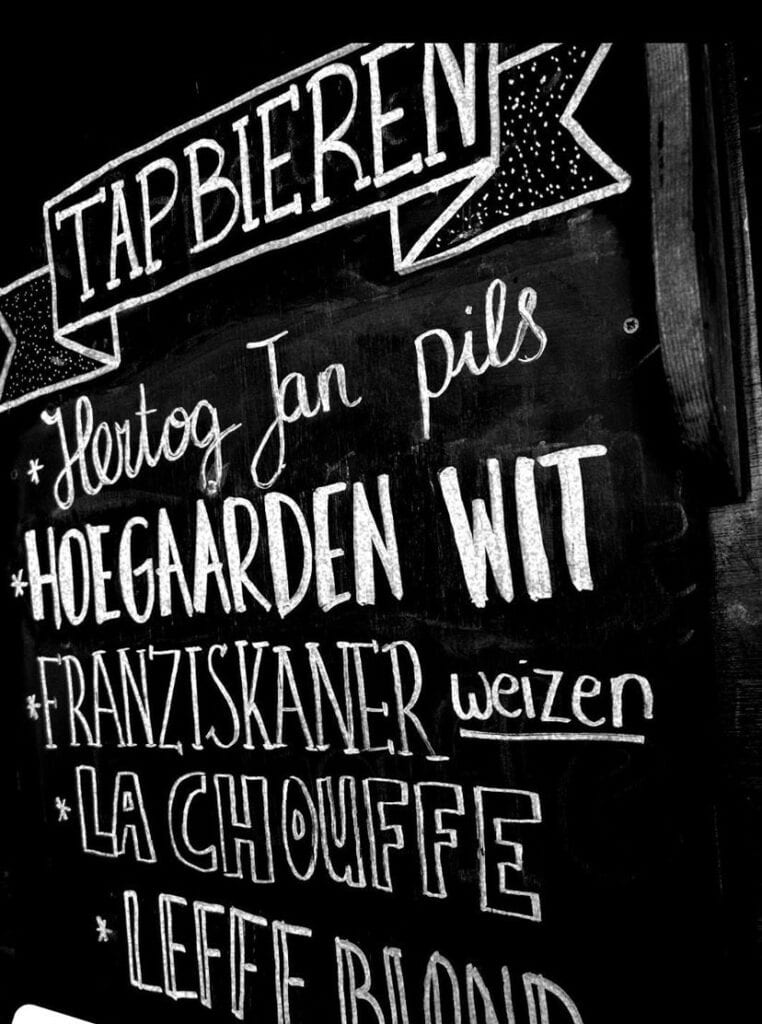 TAPBIEREN
* Hertog Jan pils
* HOEGAARDEN WIT
* FRANZISKANER weizen
* LA CHOUFFE
* LEFFE BLOND